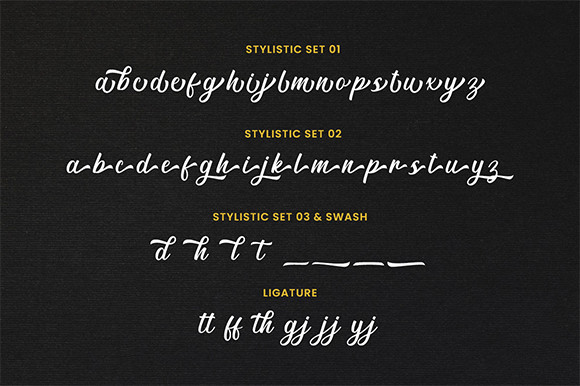 STYLISTIC SET 01
abcdefghijlmnopstuxyz
STYLISTIC SET 02
abcdefghijklmnprstuyz
STYLISTIC SET 03 & SWASH
d h l t _ _ _ _
LIGATURE
tt ff th gj jj yj